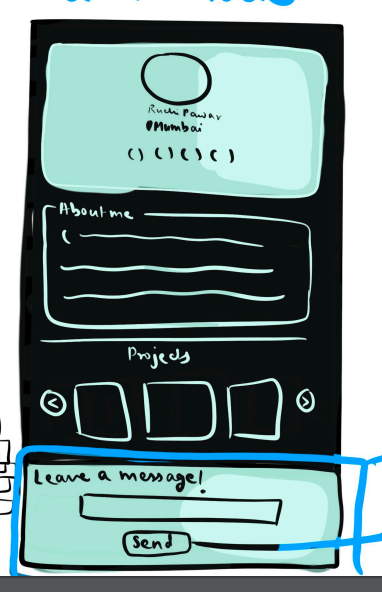 Ruchi Pawar
Mumbai
About me
Projects
< >
Leave a message!
Send